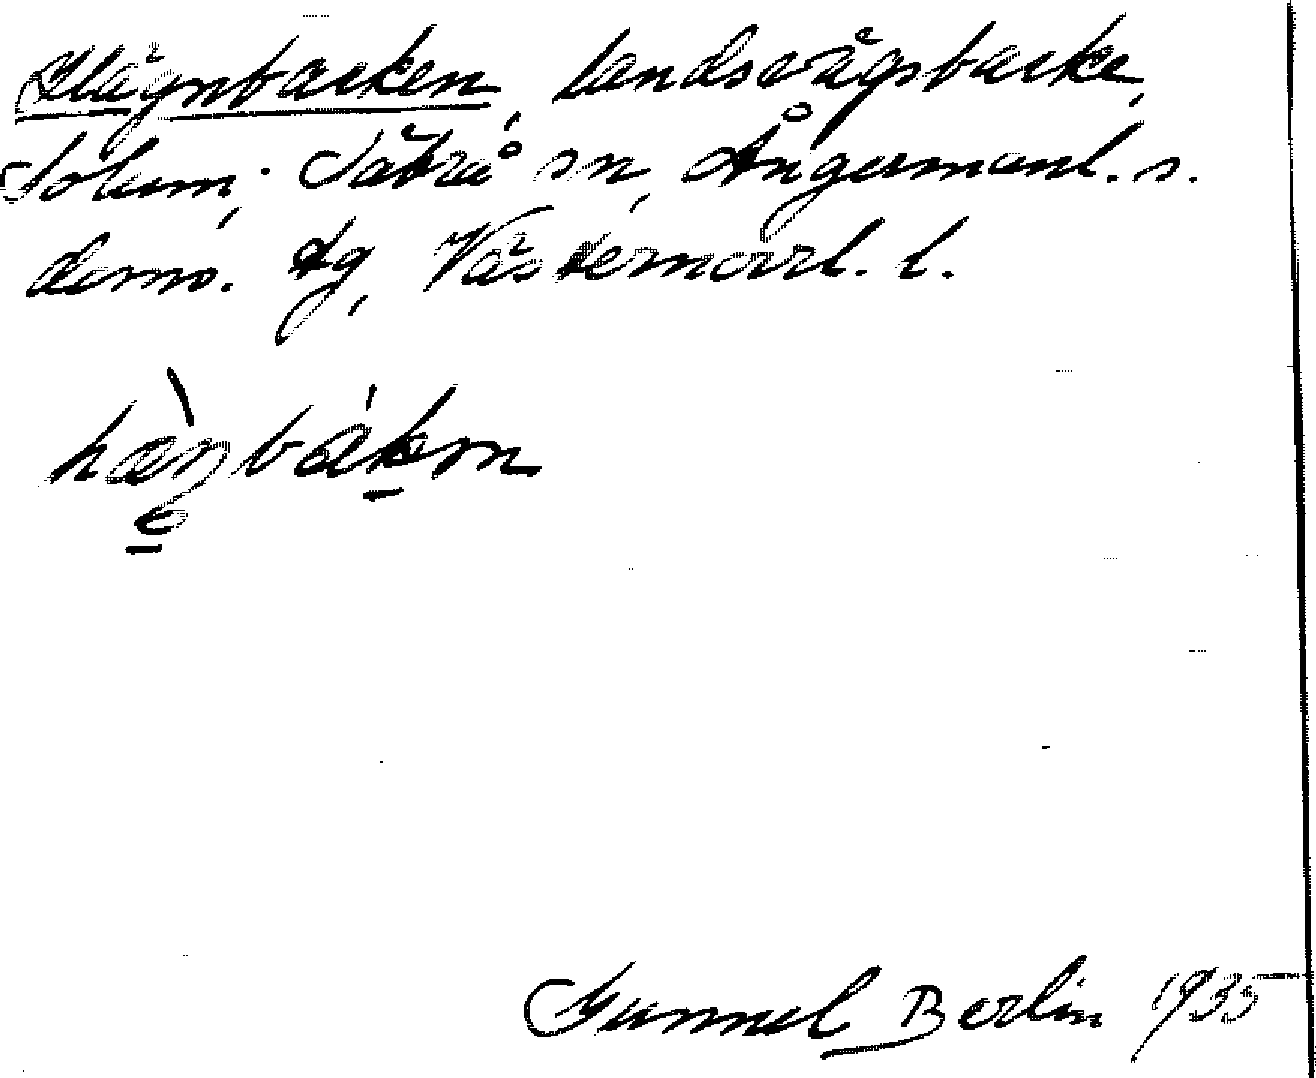 Hägnbacken, landsvägsbacke,
Solum, Säbrå sn, Ångermanl. s.
doms. tg, Västernorrl. l.
Gunnel Berlin 1935